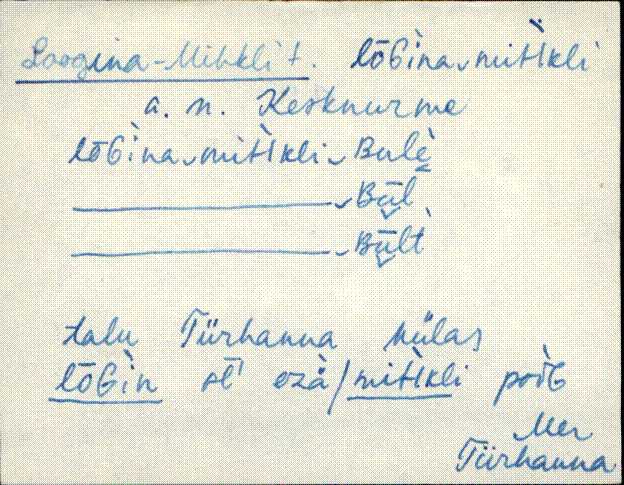 Loogina-Mihkli t. lōɢ̀ina‿mitìkli
a. n. Kesknurme
lōɢ̀ina‿mitìkli‿Bulè
‿Būl
‿Būlt̀
talu Türhanna külas
lōɢ̀in ol̄' ezà/mitìkli poìɢ
Mer
Türhanna